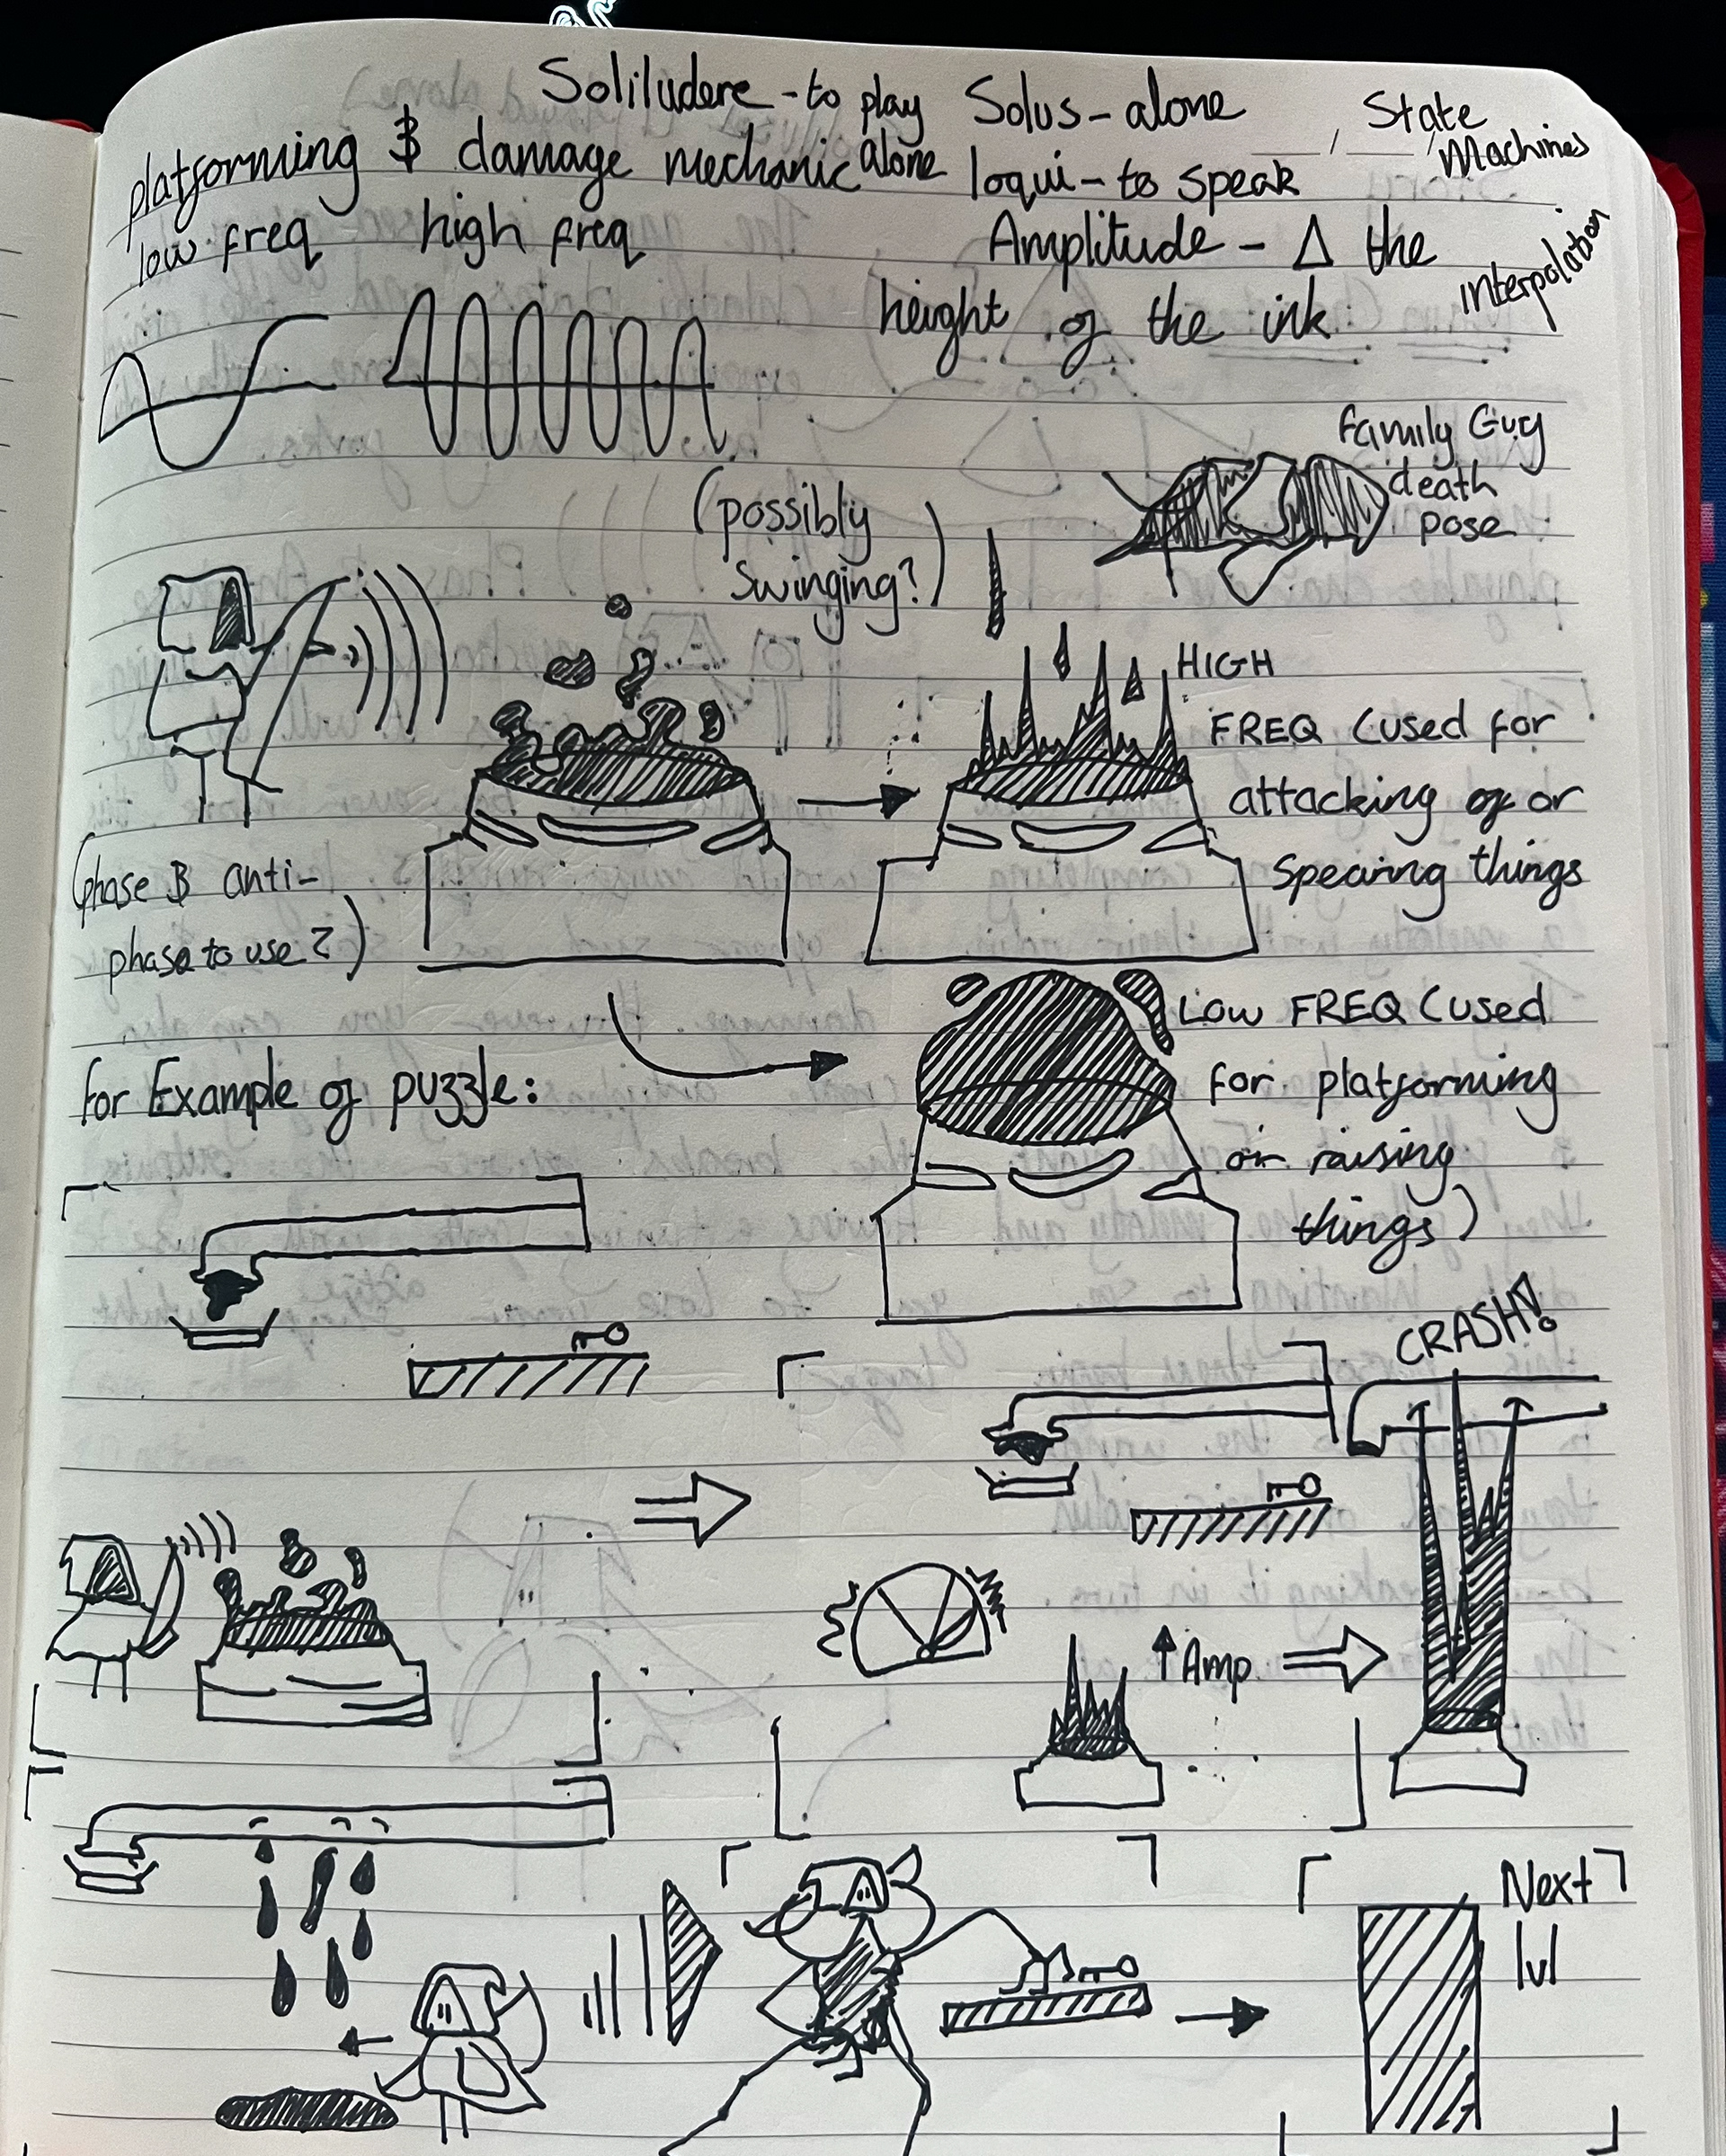 Soliludere - to play alone
Solus - alone
loqui - to speak
State Machines
Interpolation
platforming & damage mechanic
low freq high freq
Amplitude - Δ the
height of the ink
Family Guy
death
pose
(possibly
swinging?)
HIGH
FREQ (used for
attacking or
spearing things
(phase & anti-
phase to use?)
LOW FREQ (used
for platforming
or raising
things)
for Example of puzzle:
CRASH!
↑ Amp
Next
lvl